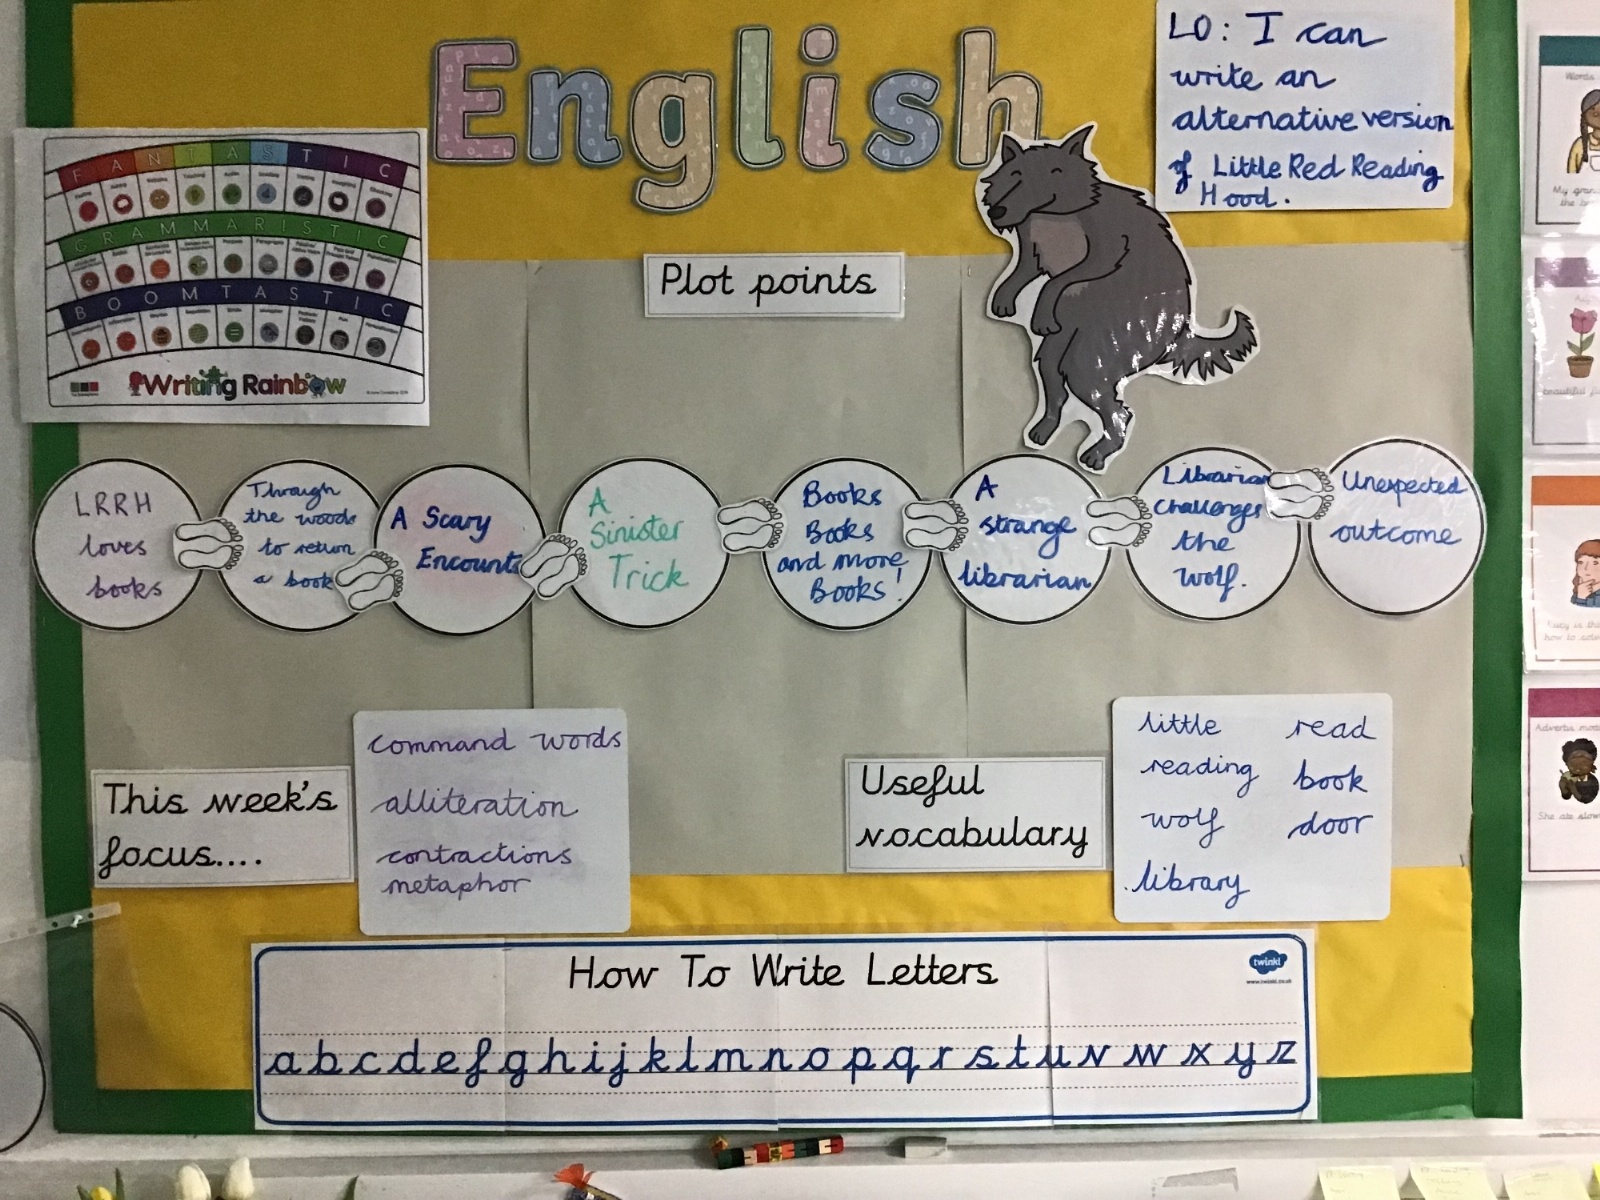 English
LO: I can
write an
alternative version
of Little Red Reading
Hood.
FANTASTIC
GRAMMARISTIC
BOOMTASTIC
Writing Rainbow
Plot points
LRRH
loves
books
Through
the woods
to return
a book
A Scary
Encounte
A
Sinister
Trick
Books
Books
and more
Books!
A
strange
librarian
Librarian
challenges
the
wolf.
Unexpected
outcome
This week's
focus....
command words
alliteration
contractions
metaphor
Useful
vocabulary
little read
reading book
wolf door
library
How To Write Letters
twinkl
www.twinkl.co.uk
a b c d e f g h i j k l m n o p q r s t u v w x y z